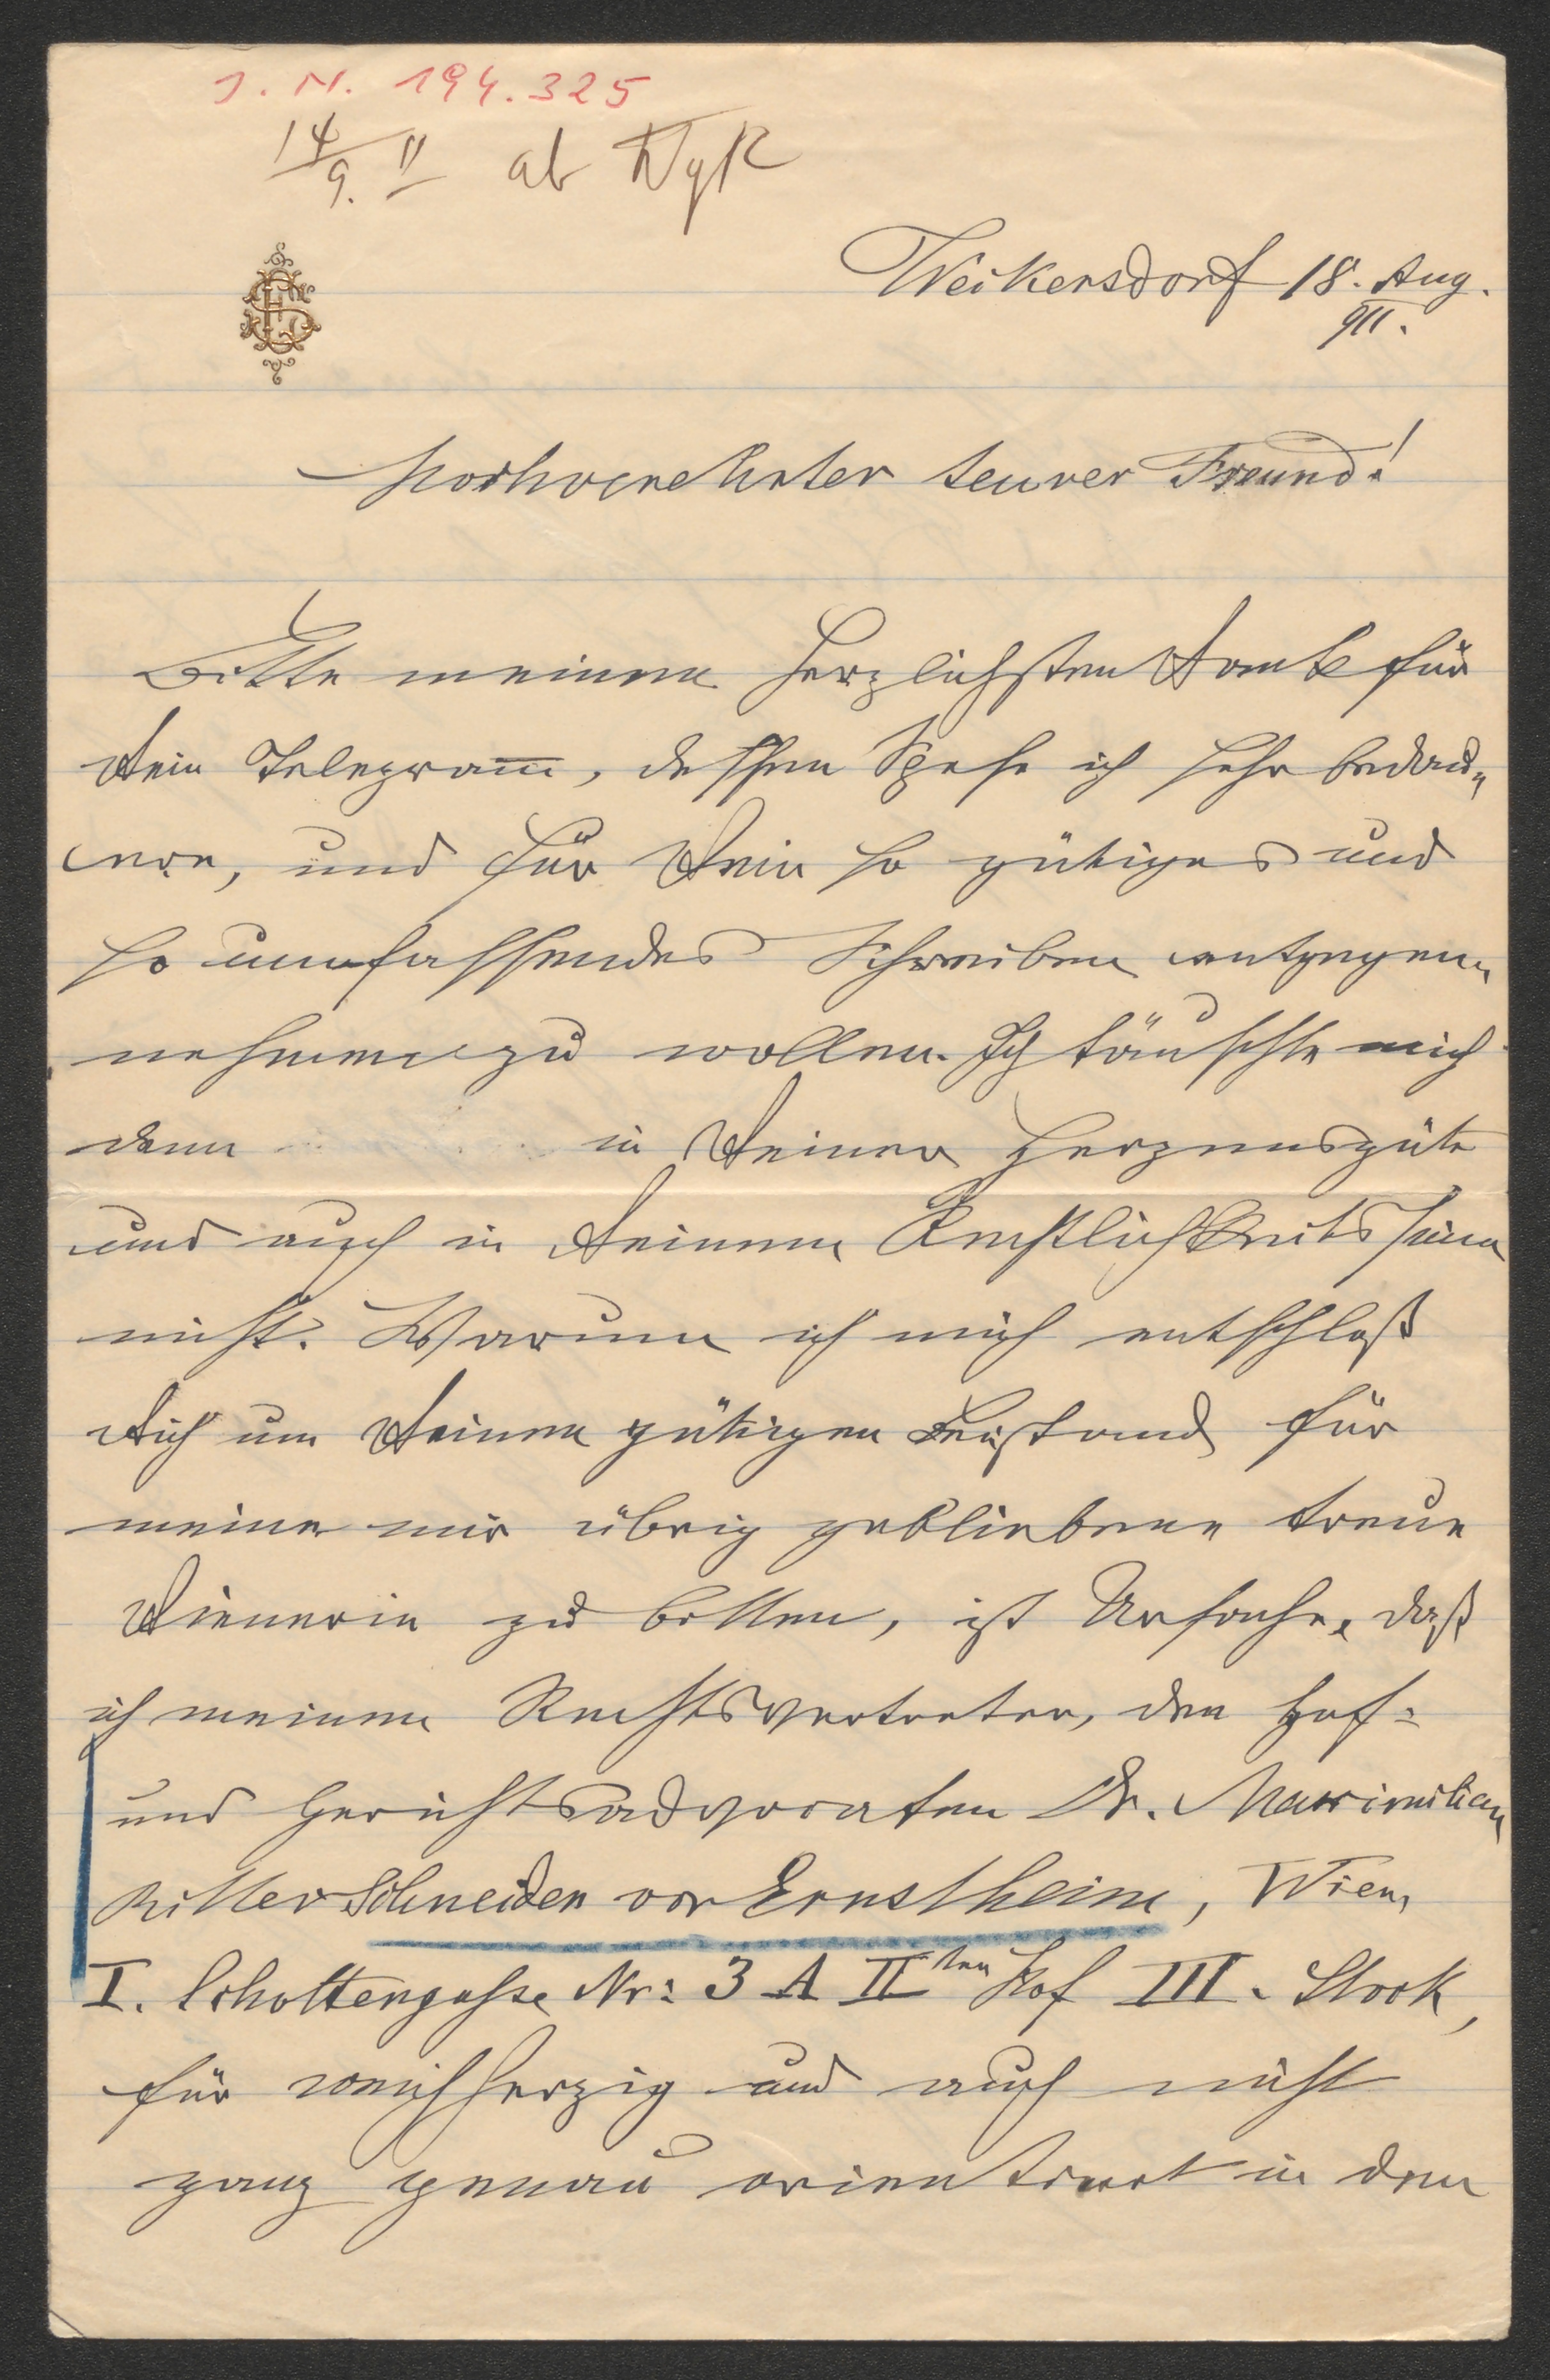 J. N. 194.325
14/9. 11 ab
Weikersdorf 18. Aug.
911.
Hochverehrter teurer Freund!
Bitte meinen herzlichsten Dank für
Dein Telegram̅, dessen Spese ich sehr bedau„
ere, und für Dein so gütiges und
so umfassendes Schreiben entgegen„
nehmen zu wollen. Ich täuschte mich
denn in Deiner Herzensgüte
und auch in Deinem Rechtlichkeitssinn
nicht. Warum ich mich entschloß
Dich um Deinen gütigen Beistand für
meine mir übrig gebliebene treue
Dienerin zu bitten, ist Ursache, daß
ich meinen Rechtsvertreter, den Hof=
und Gerichtsadvocaten Dr. Maximilian
Ritter Schneider von Ernstheim, Wien,
I. Schottengasse Nr: 3 A II ten Hof III. Stock,
für weichherzig und auch nicht
ganz genau orientiert in den